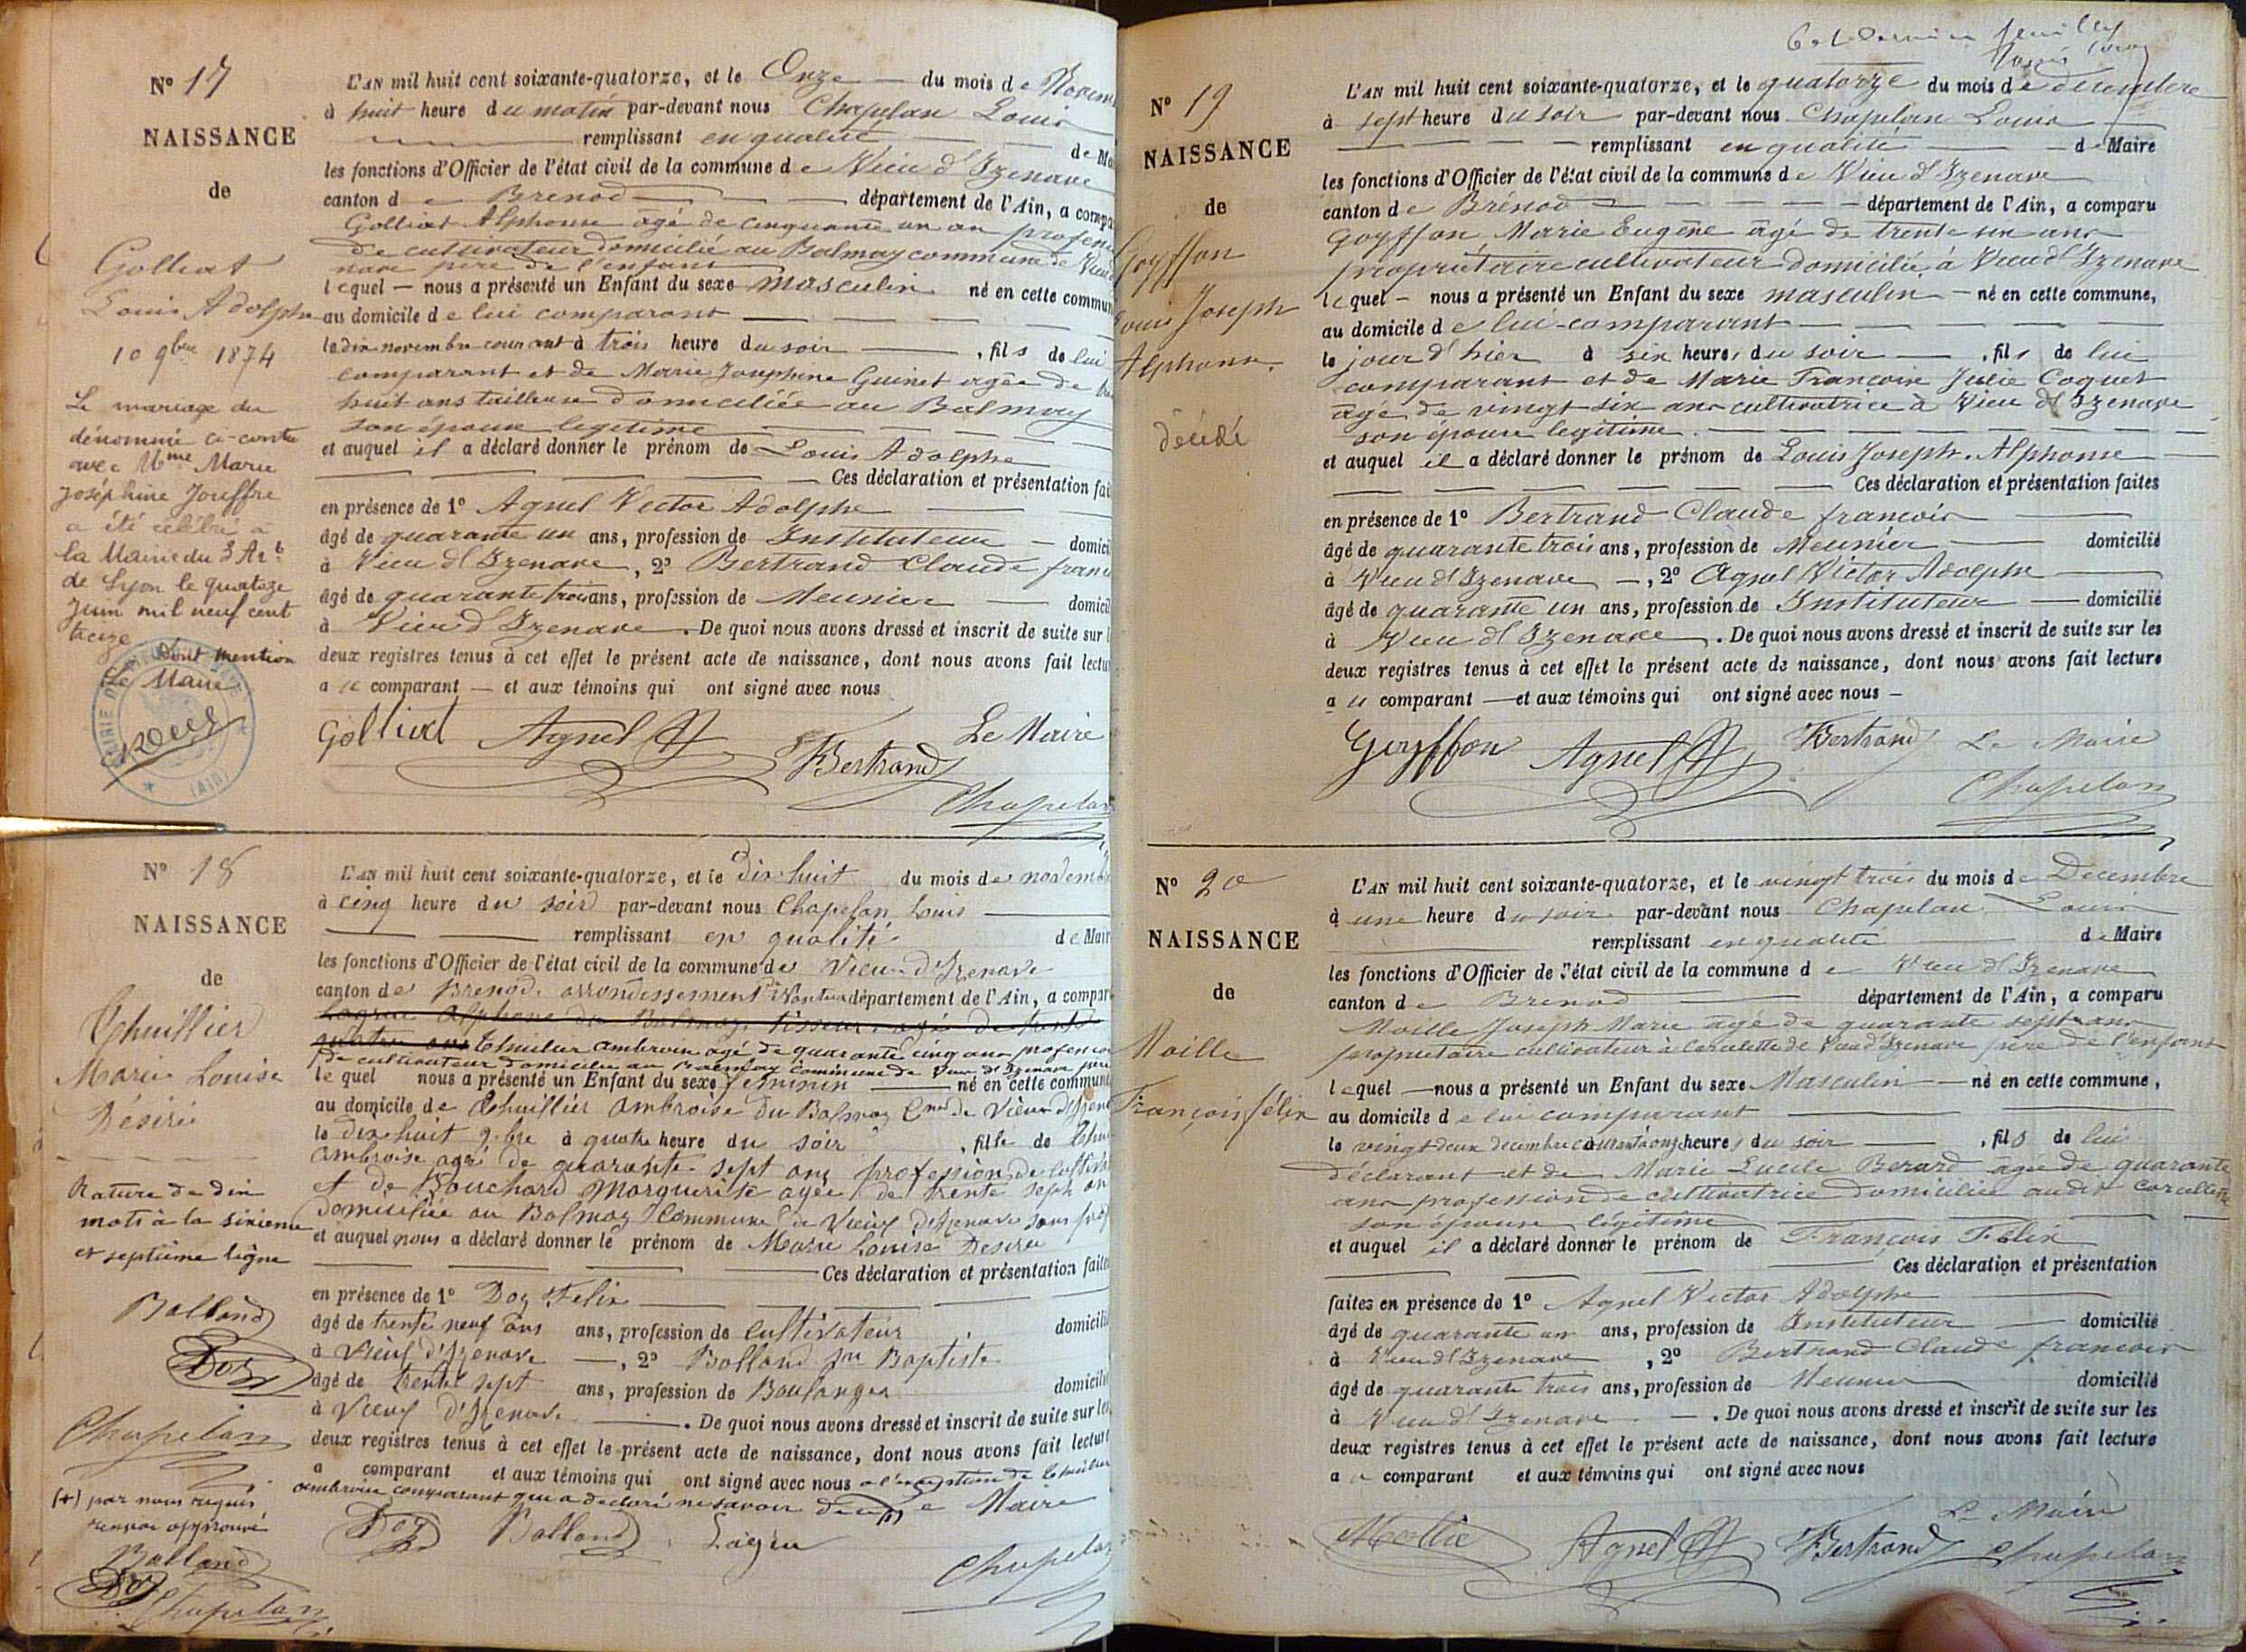 N° 17
NAISSANCE
de
Golliat
Louis Adolphe
10 9bre 1874
Le mariage du
dénommé ci-contre
avec Mme Marie
Joséphine Jouffre
a été célébré à
la Mairie du 3 Art
de Lyon le quatorze
Juin mil neuf cent
treize
Dont mention
Le Maire
L'AN mil huit cent soixante-quatorze, et le Onze du mois de Novem
à huit heure du matin par-devant nous Chapelan Louis
remplissant en qualité de Ma
les fonctions d'Officier de l'état civil de la commune de Vieu d'Izenave
canton de Brenod département de l'Ain, a compa
Golliat Alphonse agé de cinquante un an profess
de cultivateur domicilié au Balmay commune de Vieu
nave père de l'enfant
lequel nous a présenté un Enfant du sexe masculin né en cette commun
au domicile de lui comparant
le dix novembre courant à trois heure du soir , fils de lui
comparant et de Marie Josephine Guinet agée de
huit ans tailleuse domiciliée au Balmay
son épouse legitime
et auquel il a déclaré donner le prénom de Louis Adolphe
Ces déclaration et présentation fai
en présence de 1° Agnel Victor Adolphe
âgé de quarante un ans, profession de Instituteur domicil
à Vieu d'Izenave, 2° Bertrand Claude franc
âgé de quarante trois ans, profession de Meunier domicil
à Vieu d'Izenave. De quoi nous avons dressé et inscrit de suite sur l
deux registres tenus à cet effet le présent acte de naissance, dont nous avons fait lectu
a le comparant et aux témoins qui ont signé avec nous
Golliat Agnel Bertrand Le Maire
Chapelan
N° 18
NAISSANCE
de
Thuillier
Marie Louise
Désirée
Rature de dix
mots à la sixieme
et septième ligne
Balland
Doz
Chapelan
(+) par nous requis
renvoi approuvé
Balland
Doz
Chapelan
L'AN mil huit cent soixante-quatorze, et le dix huit du mois de novemb
à cinq heure du soir par-devant nous Chapelan Louis
remplissant en qualité de Mair
les fonctions d'Officier de l'état civil de la commune de Vieu d'Izenave
canton de Brenod. arrondissement de Nantua département de l'Ain, a compar
Lagrue Alphonse du Balmay tisseur agé de trente
quatre ans Thuilier Ambroise agé de quarante cinq ans profession
de cultivateur domicilié au Balmay commune de Vieu d'Izenave père
lequel nous a présenté un Enfant du sexe feminin né en cette commune
au domicile de Thuillier Ambroise du Balmay Cne de Vieux d'Izen
le dix huit 9bre à quatre heure du soir , fille de Thui
Ambroise agé de quarante sept ans profession de cultiva
et de Bouchard Marguerite agée de trente sept an
domiciliée au Balmay Commune de Vieux d'Izenave sans prof
et auquel nous a déclaré donner le prénom de Marie Louise Desirée
Ces déclaration et présentation faite
en présence de 1° Doz Felix
âgé de trente neuf ans ans, profession de cultivateur domicilié
à Vieux d'Izenave, 2° Balland Jn Baptiste
âgé de trente sept ans, profession de Boulanger domicilié
à Vieux d'Izenave. De quoi nous avons dressé et inscrit de suite sur les
deux registres tenus à cet effet le présent acte de naissance, dont nous avons fait lecture
a comparant et aux témoins qui ont signé avec nous a l'exception de Thuilier
ambroise comparant qui a declaré ne savoir Le Maire
Doz Balland Lagru
Chapelan
N° 19
NAISSANCE
de
Goyffon
Louis Joseph
Alphonse.
décédé
L'AN mil huit cent soixante-quatorze, et le quatorze du mois de décembre
à sept heure du soir par-devant nous Chapelan Louis
remplissant en qualité de Maire
les fonctions d'Officier de l'état civil de la commune de Vieu d'Izenave
canton de Brénod département de l'Ain, a comparu
Goyffon Marie Eugène âgé de trente six ans
propriétaire cultivateur domicilié à Vieu d'Izenave
lequel nous a présenté un Enfant du sexe masculin né en cette commune,
au domicile de lui-comparant
le jour d'hier à six heures du soir , fils de lui
comparant et de Marie Françoise Julie Coquet
agé de vingt six ans cultivatrice à Vieu d'Izenave
son épouse legitime.
et auquel il a déclaré donner le prénom de Louis Joseph. Alphonse
Ces déclaration et présentation faites
en présence de 1° Bertrand Claude françois
âgé de quarante trois ans, profession de Meunier domicilié
à Vieu d'Izenave, 2° Agnel Victor Adolphe
âgé de quarante un ans, profession de Instituteur domicilié
à Vieu d'Izenave. De quoi nous avons dressé et inscrit de suite sur les
deux registres tenus à cet effet le présent acte de naissance, dont nous avons fait lecture
a le comparant et aux témoins qui ont signé avec nous
Goyffon Agnel Bertrand Le Maire
Chapelan
N° 20
NAISSANCE
de
Moille
François félix
L'AN mil huit cent soixante-quatorze, et le vingt trois du mois de Decembre
à une heure du soir par-devant nous Chapelan Louis
remplissant en qualité de Maire
les fonctions d'Officier de l'état civil de la commune de Vieu d'Izenave
canton de Brenod département de l'Ain, a comparu
Moille Joseph Marie agé de quarante sept ans
propriétaire cultivateur à Corcelette de Vieu d'Izenave père de l'enfant
lequel nous a présenté un Enfant du sexe Masculin né en cette commune,
au domicile de lui comparant
le vingt deux decembre courant à onze heures du soir , fils de lui
déclarant et de Marie Lucile Berard agée de quarante
ans profession de cultivatrice domiciliée audit Corcelette
son épouse légitime
et auquel il a déclaré donner le prénom de François Félix
Ces déclaration et présentation
faites en présence de 1° Agnel Victor Adolphe
âgé de quarante un ans, profession de Instituteur domicilié
à Vieu d'Izenave, 2° Bertrand Claude françois
âgé de quarante trois ans, profession de Meunier domicilié
à Vieu d'Izenave. De quoi nous avons dressé et inscrit de suite sur les
deux registres tenus à cet effet le présent acte de naissance, dont nous avons fait lecture
a le comparant et aux témoins qui ont signé avec nous
Le Maire
Moille Agnel Bertrand Chapelan